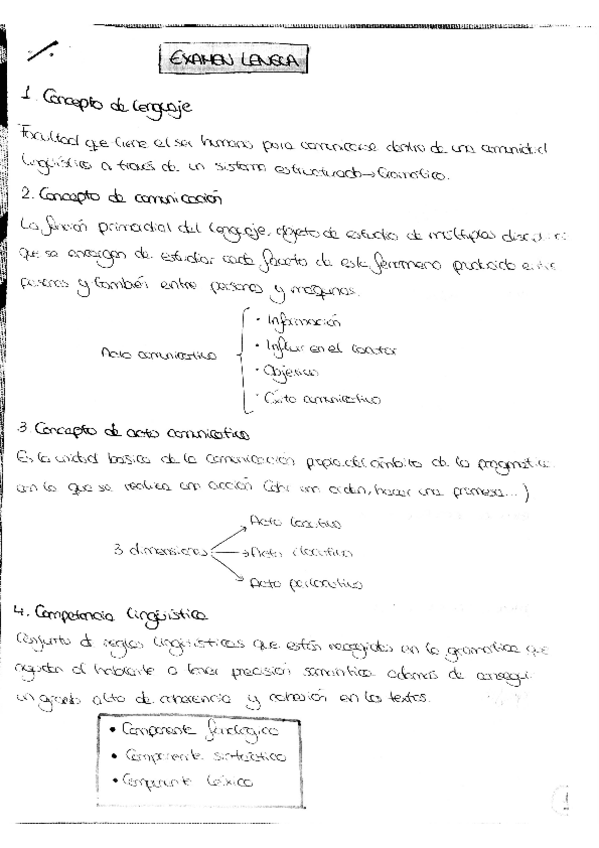 EXAMEN LENGUA
1. Concepto de lenguaje
Facultad que tiene el ser humano para comunicarse dentro de una comunidad
lingüística a través de un sistema estructurado → Gramática.
2. Concepto de comunicación
La función primordial del lenguaje, objeto de estudio de múltiples
que se encargan de estudiar cada faceta de este fenómeno producido entre
personas y también entre personas y máquinas.
· Información
· Influir en el
Acto comunicativo
· Objetivo
· Éxito comunicativo
3 Concepto de acto comunicativo
Es la unidad básica de la comunicación propia del ámbito de la
con la que se realiza una acción (dar una orden, hacer una promesa...)
Acto locutivo
3 dimensiones → Acto ilocutivo
Acto perlocutivo
4. Competencia lingüística
Conjunto de reglas lingüísticas que están recogidas en la gramática que
ayudan al hablante a tener precisión semántica además de
un grado alto de coherencia y cohesión en los textos.
• Componente fonológico
• Componente sintáctico
• Componente léxico